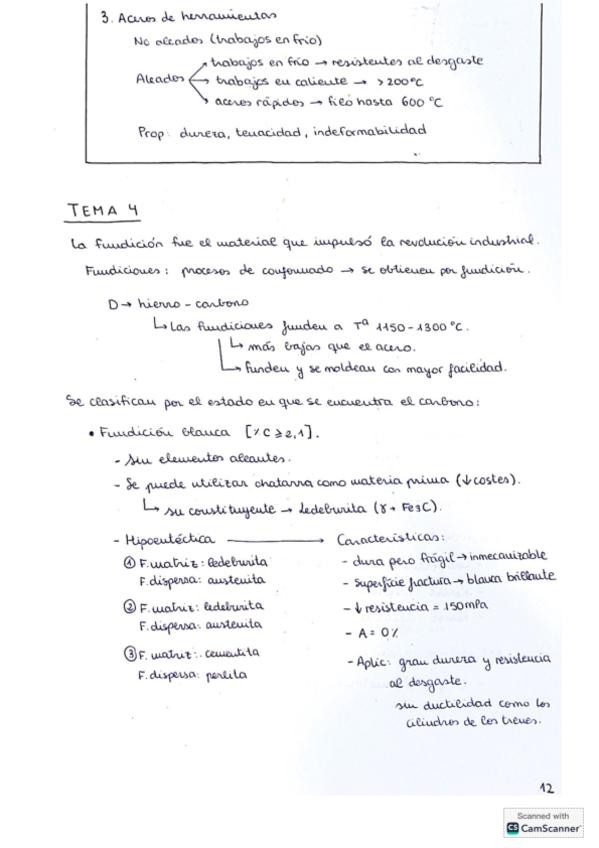 3. Aceros de herramientas
No aleados (trabajos en frío)
Aleados
trabajos en frío → resistentes al desgaste
trabajos en caliente → >200ºC
aceros rápidos → filo hasta 600 ºC
Prop: dureza, tenacidad, indeformabilidad
TEMA 4
La fundición fue el material que impulsó la revolución industrial.
Fundiciones: procesos de conformado → se obtienen por fundición.
D → hierro - carbono
↳ Las fundiciones funden a Tª 1150-1300 ºC.
↳ más bajas que el acero.
↳ funden y se moldean con mayor facilidad.
Se clasifican por el estado en que se encuentra el carbono:
• Fundición blanca [% C ≥ 2,1].
- Sin elementos aleantes.
- Se puede utilizar chatarra como materia prima (↓ costes).
↳ su constituyente → Ledeburita (γ + Fe3C).
- Hipoeutéctica → Características:
① F. matriz: ledeburita
F. dispersa: austenita
② F. matriz: ledeburita
F. dispersa: austenita
③ F. matriz: cementita
F. dispersa: perlita
- dura pero frágil → inmecanizable
- Superficie fractura → blanca brillante
- ↓ resistencia = 150 mPa
- A = 0 %
- Aplic: gran dureza y resistencia
al desgaste.
sin ductilidad como los
cilindros de los trenes.
12
Scanned with
CS CamScanner